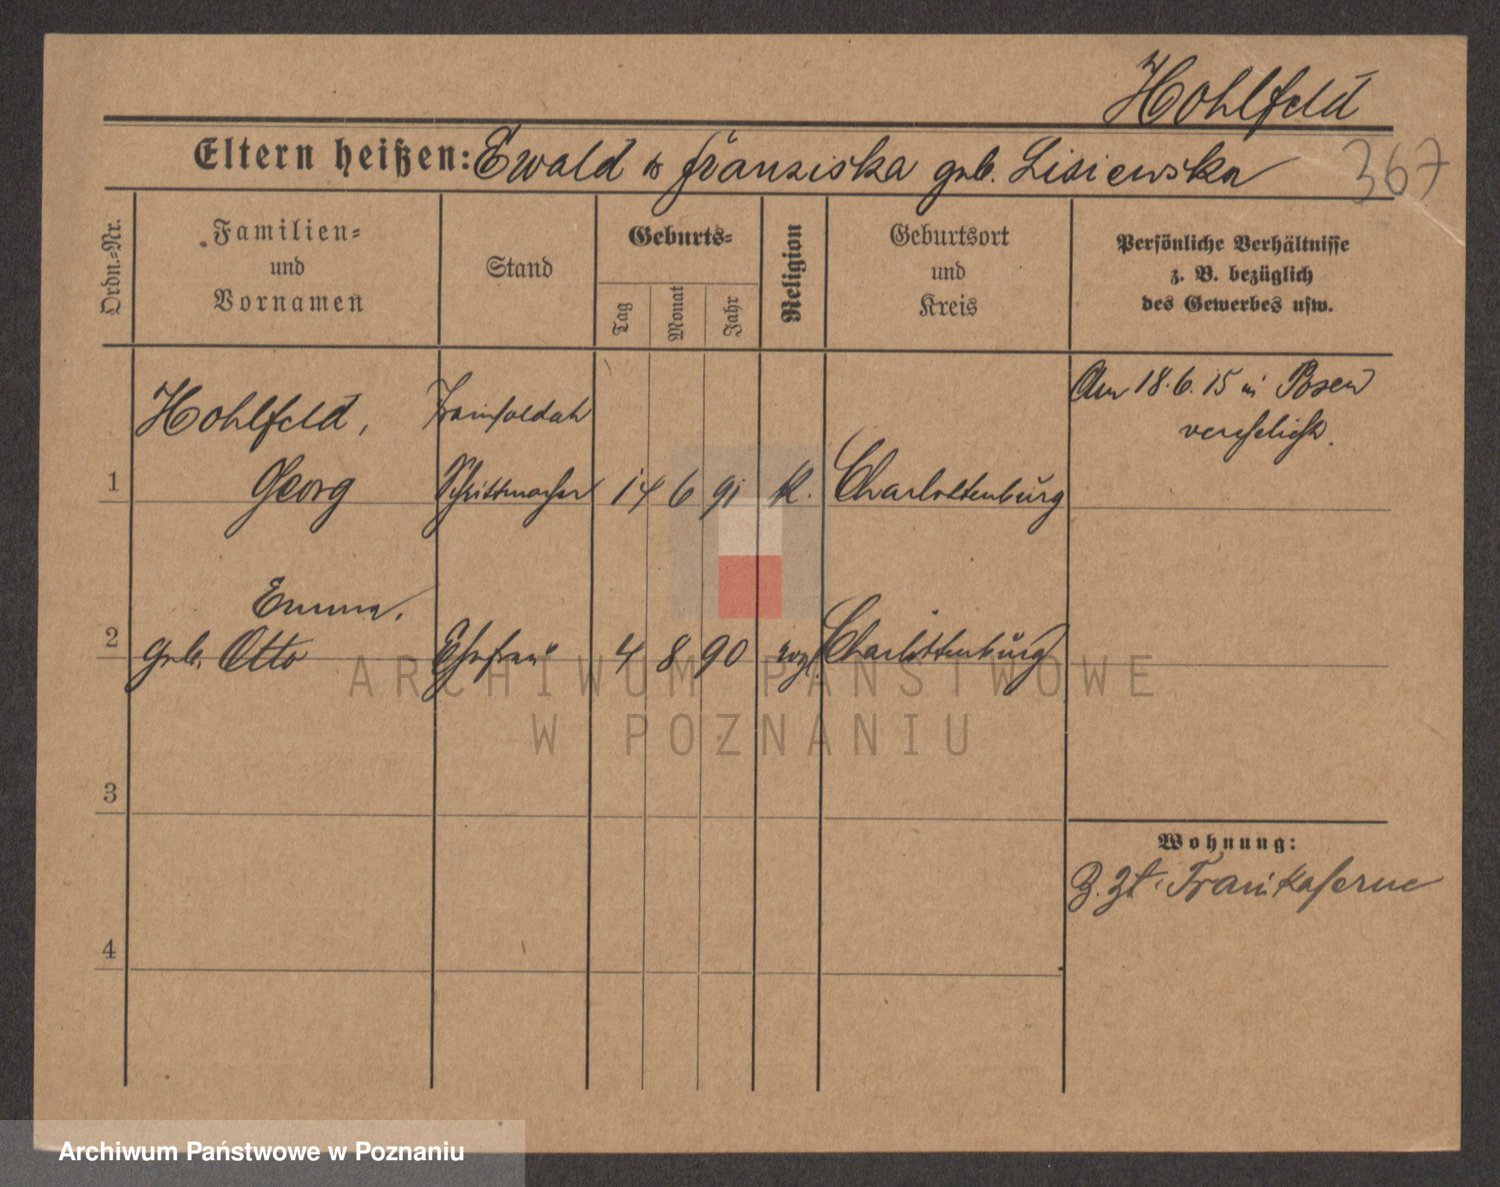 Hohlfeld
Eltern heißen: Ewald & Franziska geb. Lisiewska
367
Ordn.-Nr.
Familien-
und
Vornamen
Stand
Geburts-
Tag
Monat
Jahr
Religion
Geburtsort
und
Kreis
Persönliche Verhältnisse
z. B. bezüglich
des Gewerbes usw.
Hohlfeld, Trainsoldat Am 18.6.15 in Posen
verehelicht.
1 Georg Schrittmacher 14 6 91 k. Charlottenburg
Emma,
2 geb. Otto Ehefrau 4 8 90 evgl. Charlottenburg
3
Wohnung:
Z. Zt. Trainkaserne
4
ARCHIWUM PAŃSTWOWE
W POZNANIU
Archiwum Państwowe w Poznaniu